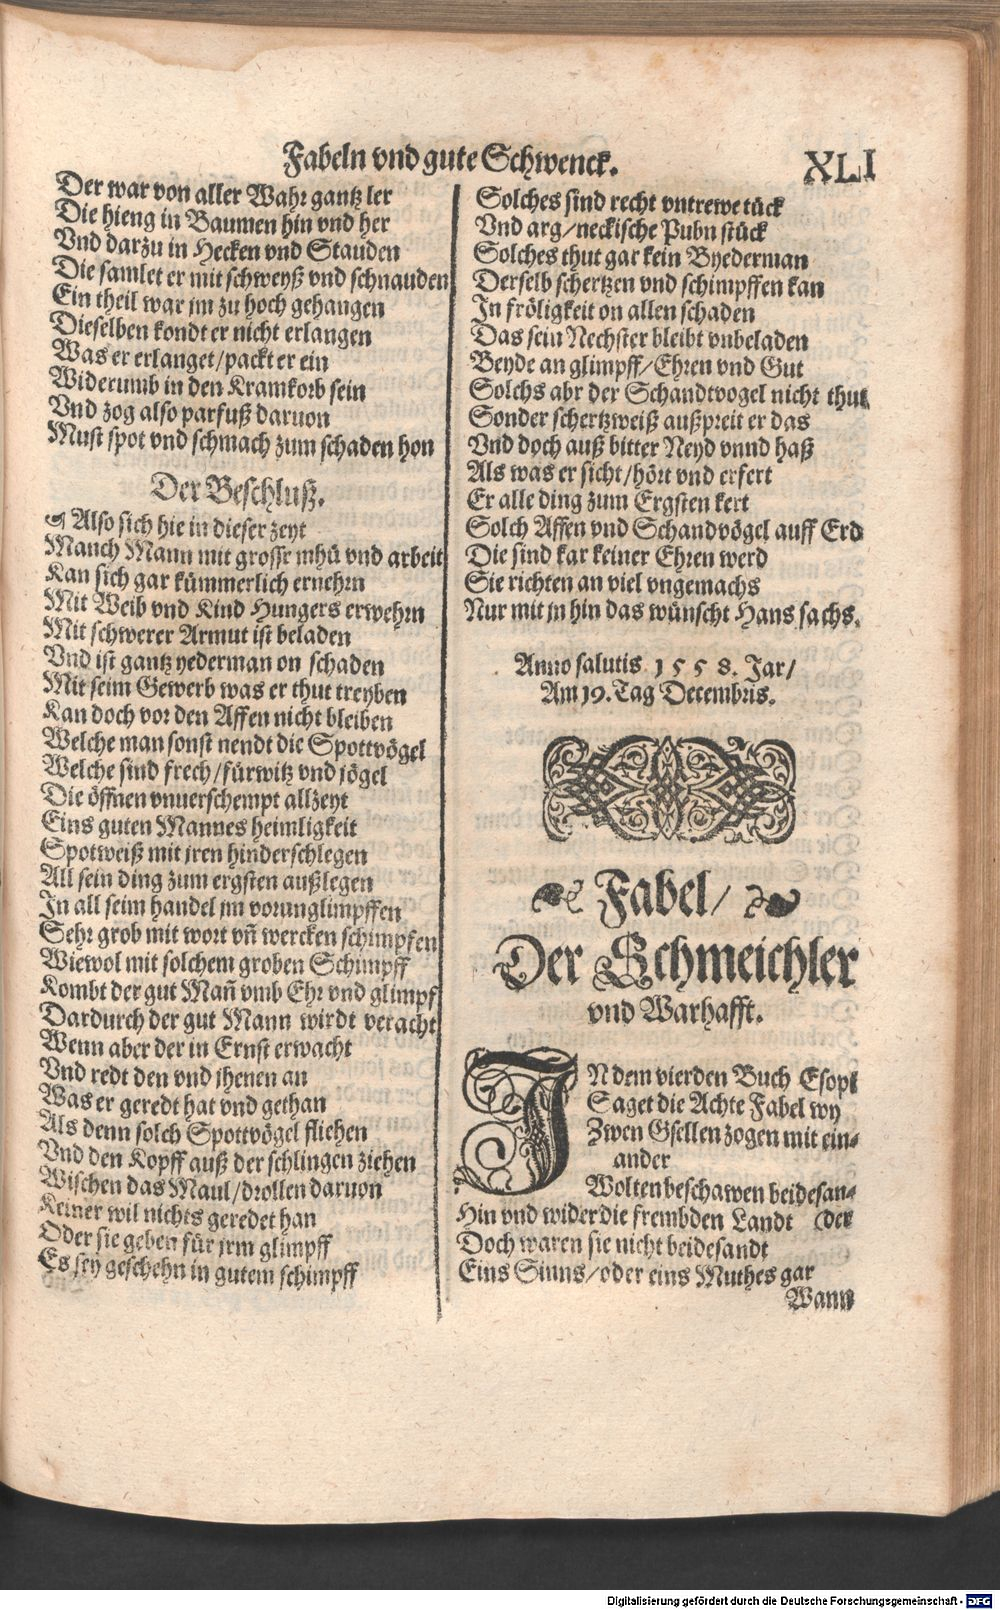 Fabeln vnd gute Schwenck.
XLI
Der war von aller Wahr gantz ler
Die hieng in Baumen hin vnd her
Vnd darzu in Hecken vnd Stauden
Die samlet er mit schweyß vnd schnauden
Ein theil war jm zu hoch gehangen
Dieselben kondt er nicht erlangen
Was er erlanget/packt er ein
Widerumb in den Kramkorb sein
Vnd zog also parfuß daruon
Must spot vnd schmach zum schaden hon
Der Beschluß.
Also sich hie in dieser zeyt
Manch Mann mit grosser mhü vnd arbeit
Kan sich gar kümmerlich ernehrn
Mit Weib vnd Kind Hungers erwehrn
Mit schwerer Armut ist beladen
Vnd ist gantz yederman on schaden
Mit seim Gewerb was er thut treyben
Kan doch vor den Affen nicht bleiben
Welche man sonst nendt die Spottvögel
Welche sind frech/fürwitz vnd jögel
Die öffnen vnuerschempt allzeyt
Eins guten Mannes heimligkeit
Spotweiß mit jren hinderschlegen
All sein ding zum ergsten außlegen
In all seim handel jm vorunglimpffen
Sehr grob mit wort vñ wercken schimpfen
Wiewol mit solchem groben Schimpff
Kombt der gut Mañ vmb Ehr vnd glimpf
Dardurch der gut Mann wirdt veracht
Wenn aber der in Ernst erwacht
Vnd redt den vnd jhenen an
Was er geredt hat vnd gethan
Als denn solch Spottvögel fliehen
Vnd den Kopff auß der schlingen ziehen
Wischen das Maul/drollen daruon
Keiner wil nichts geredet han
Oder sie geben für jrm glimpff
Es sey geschehn in gutem schimpff
Solches sind recht vntrewe tück
Vnd arg/neckische Pubn stück
Solches thut gar kein Byederman
Derselb schertzen vnd schimpffen kan
In fröligkeit on allen schaden
Das sein Nechster bleibt vnbeladen
Beyde an glimpff/Ehren vnd Gut
Solchs abr der Schandtvogel nicht thut
Sonder schertzweiß außpreit er das
Vnd doch auß bitter Neyd vnnd haß
Als was er sicht/hört vnd erfert
Er alle ding zum Ergsten kert
Solch Affen vnd Schandvögel auff Erd
Die sind kar keiner Ehren werd
Sie richten an viel vngemachs
Nur mit jn hin das wünscht Hans sachs.
Anno salutis 1558. Jar/
Am 19. Tag Decembris.
Fabel/
Der Schmeichler
vnd Warhafft.
IN dem vierden Buch Esopi
Saget die Achte Fabel wy
Zwen Gsellen zogen mit ein-
ander
Wolten beschawen beidesan-
Hin vnd wider die frembden Landt (der
Doch waren sie nicht beidesandt
Eins Sinns/oder eins Muthes gar
Wann
Digitalisierung gefördert durch die Deutsche Forschungsgemeinschaft - DFG